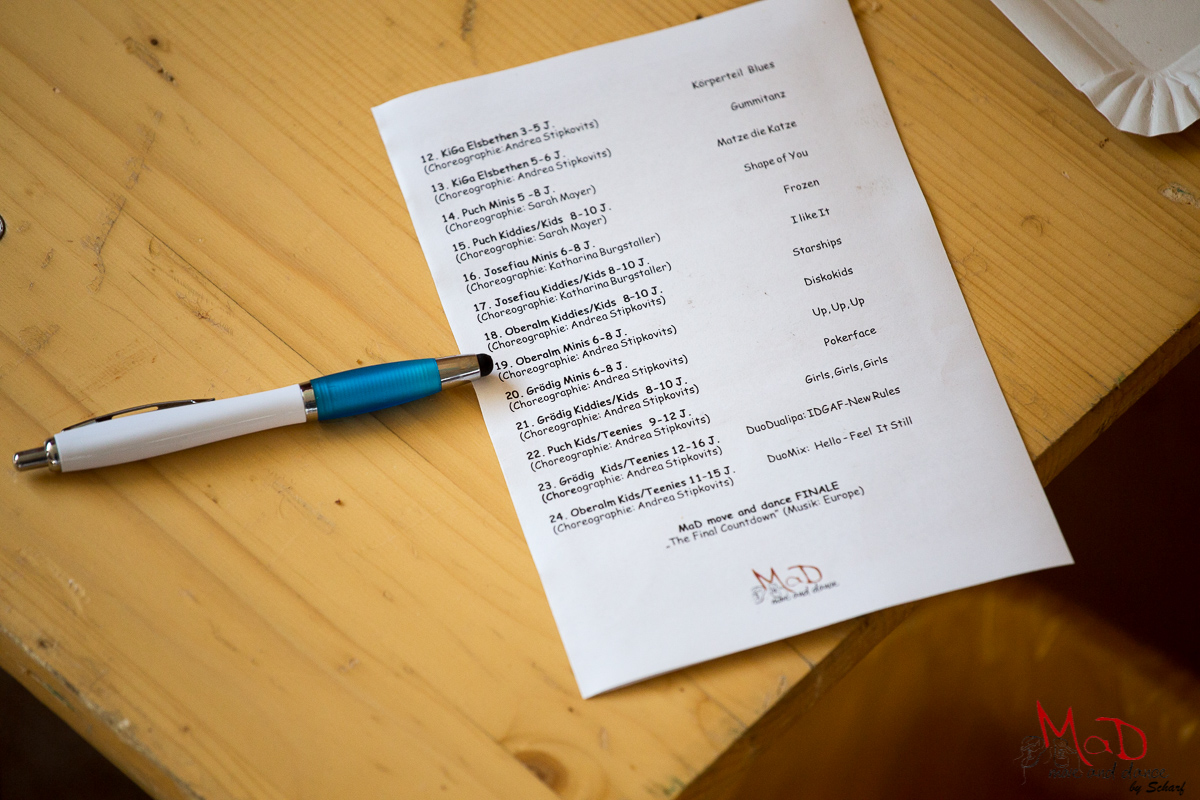 12. KiGa Elsbethen 3-5 J. Körperteil Blues
(Choreographie: Andrea Stipkovits)
13. KiGa Elsbethen 5-6 J. Gummitanz
(Choreographie: Andrea Stipkovits)
14. Puch Minis 5 -8 J. Matze die Katze
(Choreographie: Sarah Mayer)
15. Puch Kiddies/Kids 8-10 J. Shape of You
(Choreographie: Sarah Mayer)
16. Josefiau Minis 6-8 J. Frozen
(Choreographie: Katharina Burgstaller)
17. Josefiau Kiddies/Kids 8-10 J. I like It
(Choreographie: Katharina Burgstaller)
18. Oberalm Kiddies/Kids 8-10 J. Starships
(Choreographie: Andrea Stipkovits)
19. Oberalm Minis 6-8 J. Diskokids
(Choreographie: Andrea Stipkovits)
20. Grödig Minis 6-8 J. Up, Up, Up
(Choreographie: Andrea Stipkovits)
21. Grödig Kiddies/Kids 8-10 J. Pokerface
(Choreographie: Andrea Stipkovits)
22. Puch Kids/Teenies 9-12 J. Girls, Girls, Girls
(Choreographie: Andrea Stipkovits)
23. Grödig Kids/Teenies 12-16 J. DuoDualipa: IDGAF-New Rules
(Choreographie: Andrea Stipkovits)
24. Oberalm Kids/Teenies 11-15 J. DuoMix: Hello - Feel It Still
(Choreographie: Andrea Stipkovits)
MaD move and dance FINALE
„The Final Countdown" (Musik: Europe)
MaD
move and dance
MaD
move and dance
by Scharf